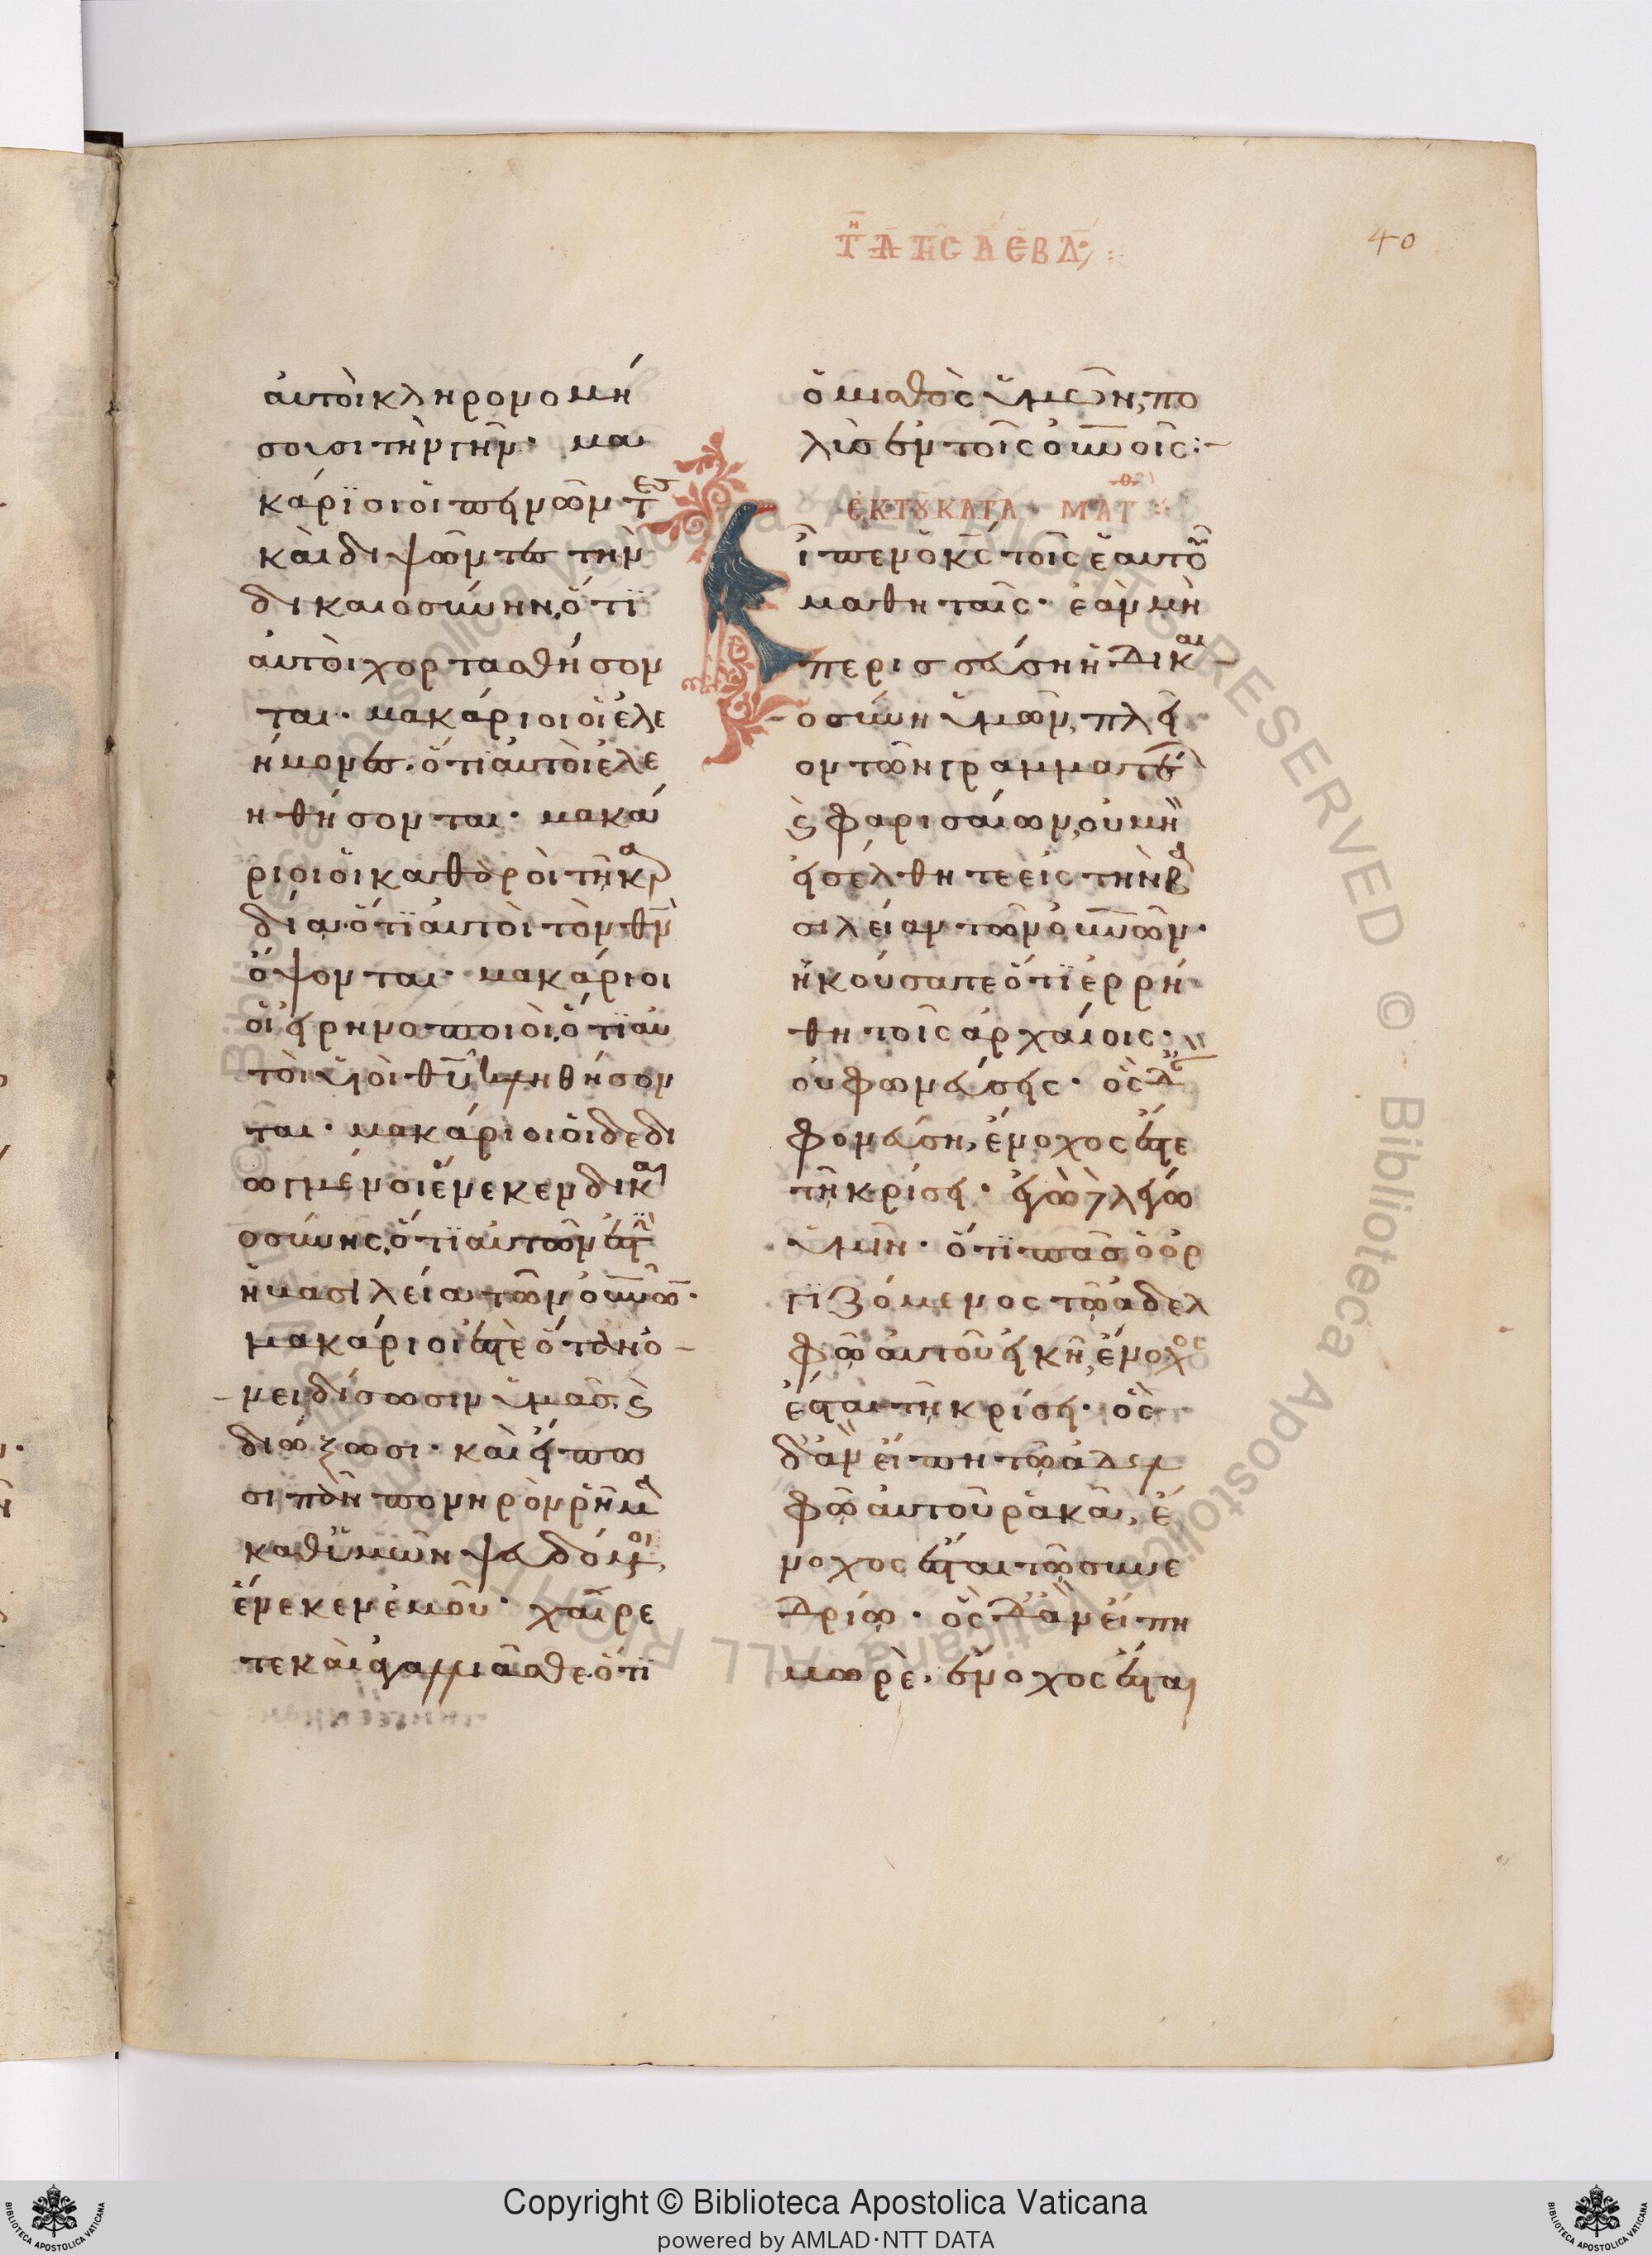 τῆ Δ τῆς Α ἑβδ
40
αὐτοὶ κληρονομή
σουσι τὴν γῆν· μα
κάριοι οἱ πεινῶντες
καὶ διψῶντες τὴν
δικαιοσύνην, ὅτι
αὐτοὶ χορτασθήσον
ται· μακάριοι οἱ ἐλε
ήμονες· ὅτι αὐτοὶ ἐλε
ηθήσονται· μακά
ριοι οἱ καθαροὶ τῆ καρ
δία· ὅτι αὐτοὶ τὸν θν
ὄψονται· μακάριοι
οἱ εἰρηνοποιοὶ, ὅτι αὐ
τοὶ υἱοὶ θυ κληθήσον
ται· μακάριοι οἱ δεδι
ωγμένοι ἕνεκεν δικαι
οσύνης, ὅτι αὐτῶν ἐστὶν
ἡ βασιλεία τῶν οὐνῶν·
μακάριοι ἐστὲ ὅταν ὀ
νειδίσωσιν ὑμᾶς, καὶ
διώξωσι· καὶ εἴπω
σι πᾶν πονηρὸν ῥῆμα
καθ' ὑμῶν ψευδόμενοι,
ἕνεκεν ἐμοῦ· χαίρε
τε καὶ ἀγαλλιᾶσθε· ὅτι
ὁ μισθὸς ὑμῶν, πο
λὺς ἐν τοῖς οὐνοῖς:
ἐκ τοῦ κατὰ Ματθ
ῖπεν ὁ κς τοῖς ἑαυτοῦ
μαθηταῖς· ἐὰν μὴ
περισσεύση ἡ δικαι
οσύνη ὑμῶν, πλεῖ
ον τῶν γραμματέων
καὶ φαρισαίων, οὐ μὴ
εἰσέλθητε εἰς τὴν βα
σιλείαν τῶν οὐνῶν·
ἠκούσατε ὅτι ἐρρή
θη τοῖς ἀρχαίοις·
οὐ φωνεύσεις· ὃς δ' ἂν
φονεύση, ἔνοχος ἔσται
τῆ κρίσει· ἐγὼ δὲ λέγω
ὑμῖν· ὅτι πᾶς ὁ ὀρ
γιζόμενος τῶ ἀδελ
φῶ αὐτοῦ εἰκῆ, ἔνοχος
ἔσται τῆ κρίσει· ὃς
δ' ἂν εἴπη τῶ ἀδελ
φῶ αὐτοῦ ρακὰ, ἔ
νοχος ἔσται τῶ συνε
δρίω· ὃς δ' ἂν εἴπη
μωρὲ, ἔνοχος ἔσται
Copyright © Biblioteca Apostolica Vaticana
powered by AMLAD·NTT DATA